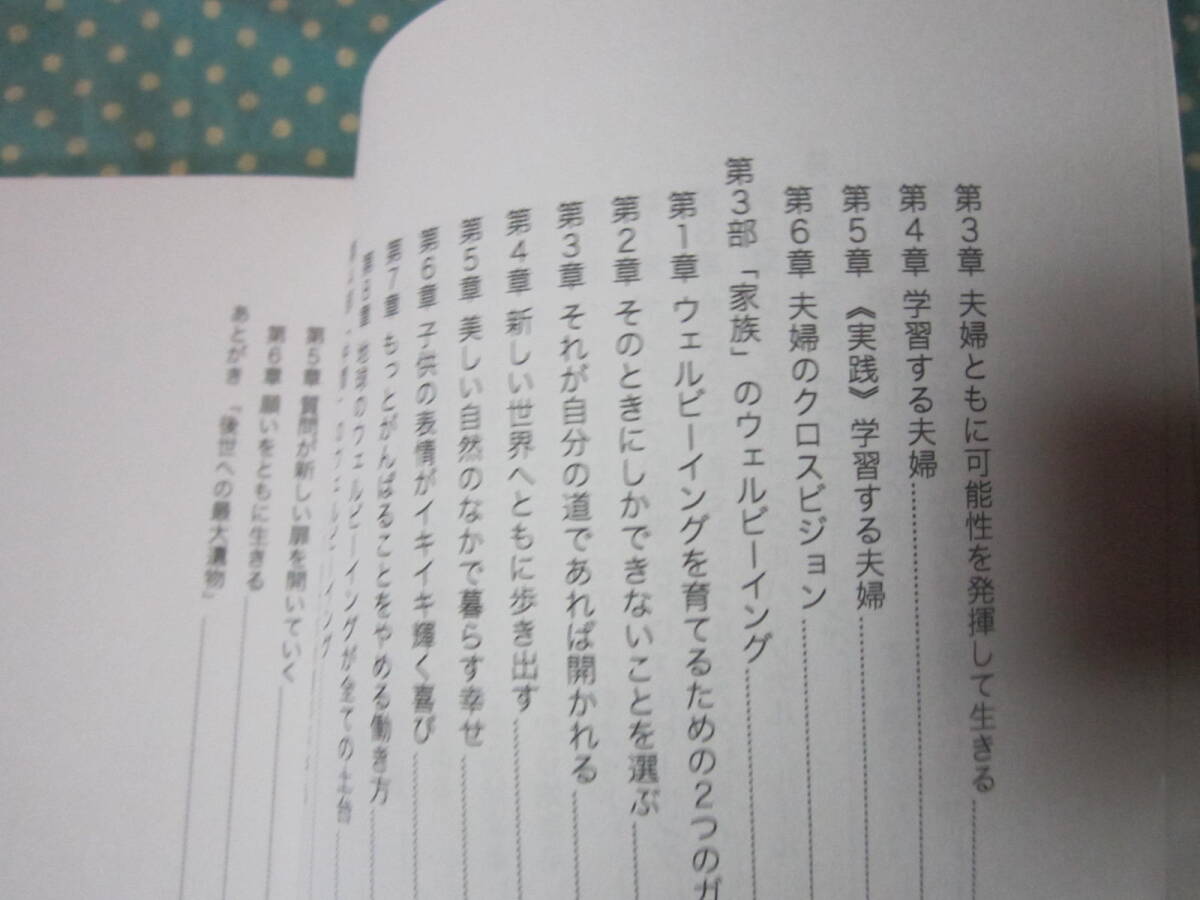 第3章 夫婦ともに可能性を発揮して生きる
第4章 学習する夫婦
第5章 《実践》学習する夫婦
第6章 夫婦のクロスビジョン
第3部 「家族」のウェルビーイング
第1章 ウェルビーイングを育てるための2つのガ
第2章 そのときにしかできないことを選ぶ
第3章 それが自分の道であれば開かれる
第4章 新しい世界へともに歩き出す
第5章 美しい自然のなかで暮らす幸せ
第6章 子供の表情がイキイキ輝く喜び
第7章 もっとがんばることをやめる働き方
第8章 地球のウェルビーイングが全ての土台
ウェルビーイング
第5章 質問が新しい扉を開いていく
第6章 願いをともに生きる
あとがき 「後世への最大遺物」